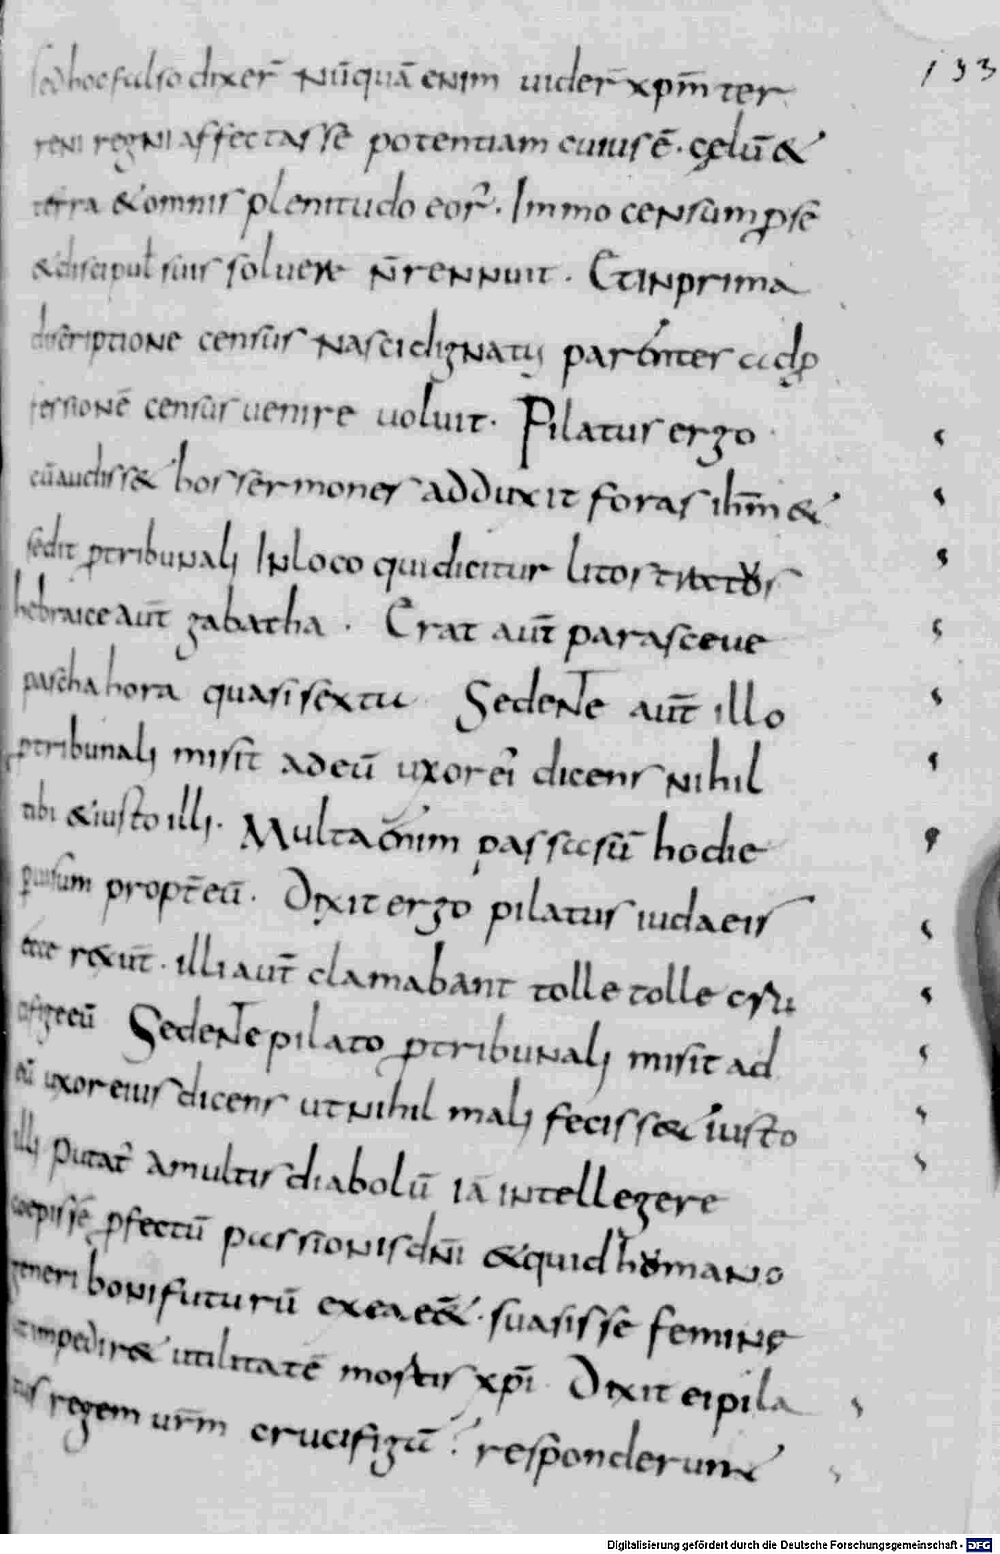 133
sed hoc falso dixer̄ Nū̄quā enim uider̄ xp̄m ter
reni regni affectasse potentiam cuius ē. cęlū &
terra & omnis plenitudo eor̄. Immo censum p se
& discipul suis soluere n̄ rennuit. Et in prima
discriptione census nasci dignatus pariter ad p
fessionē census uenire uoluit. Pilatus ergo
cū audiss& hos sermones adduxit foras ih̄m &
sedit p tribunali In loco qui dicitur litostrotos
hebraice aut̄ gabatha. Erat aut̄ parasceue
pascha hora quasi sexta Sedente aut̄ illo
p tribunali misit ad eū uxor ei dicens nihil
tibi & iusto illi. Multa enim passa sū hodie
p uisum propt̄ eū. Dixit ergo pilatus iudaeis
ecce rex ur̄. illi aut̄ clamabant tolle tolle cru
cifige eū Sedente pilato p tribunali misit ad
eū uxor eius dicens ut nihil mali feciss& iusto
illi putat̄ a multis diabolū iā intellegere
coepisse pfectū passionis dn̄i & quid humano
generi boni futurū ex ea ē&. suasisse feminę
ut impedir& utilitatē mortis xp̄i Dixit ei pila
tus regem ur̄m crucifigā? responderunt
Digitalisierung gefördert durch die Deutsche Forschungsgemeinschaft - DFG